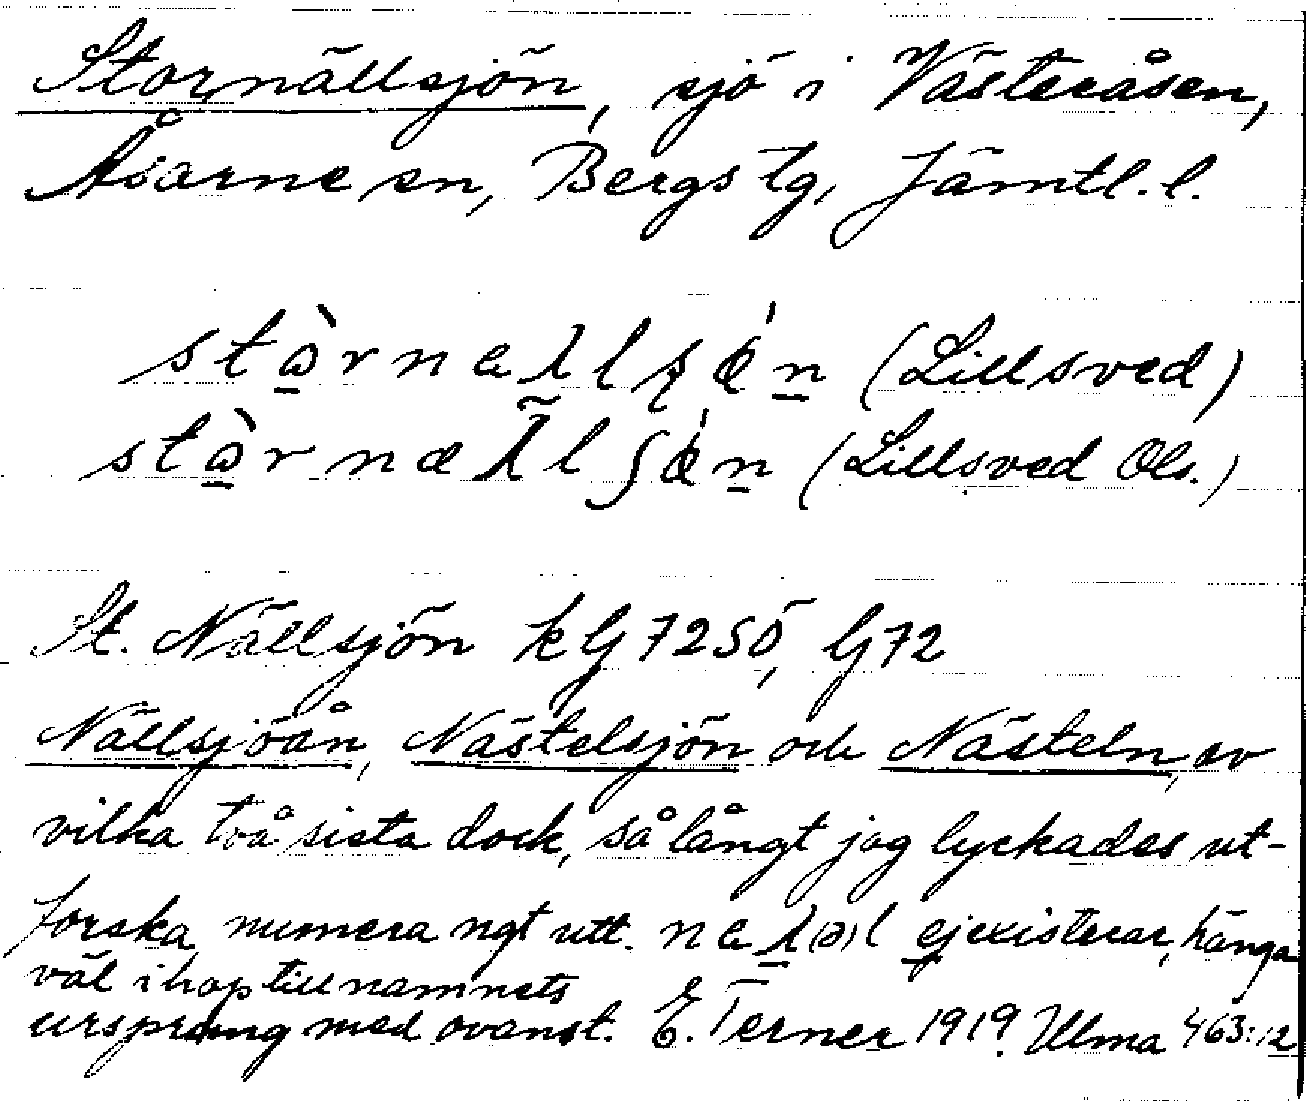 Stornällsjön, sjö i Västeråsen,
Åsarne sn, Bergs tg, Jämtl. l.
(Lillsved)
(Lillsved Ols.)
St. Nällsjön kG 72 SÖ, G 72
Nällsjöån, Nästelsjön och Nästeln, av
vilka två sista dock, så långt jag lyckades ut-
forska numera ngt utt. ej existerar, hänga
väl ihop till namnets
ursprung med ovanst. E. Terner 1919. Ulma 463:12